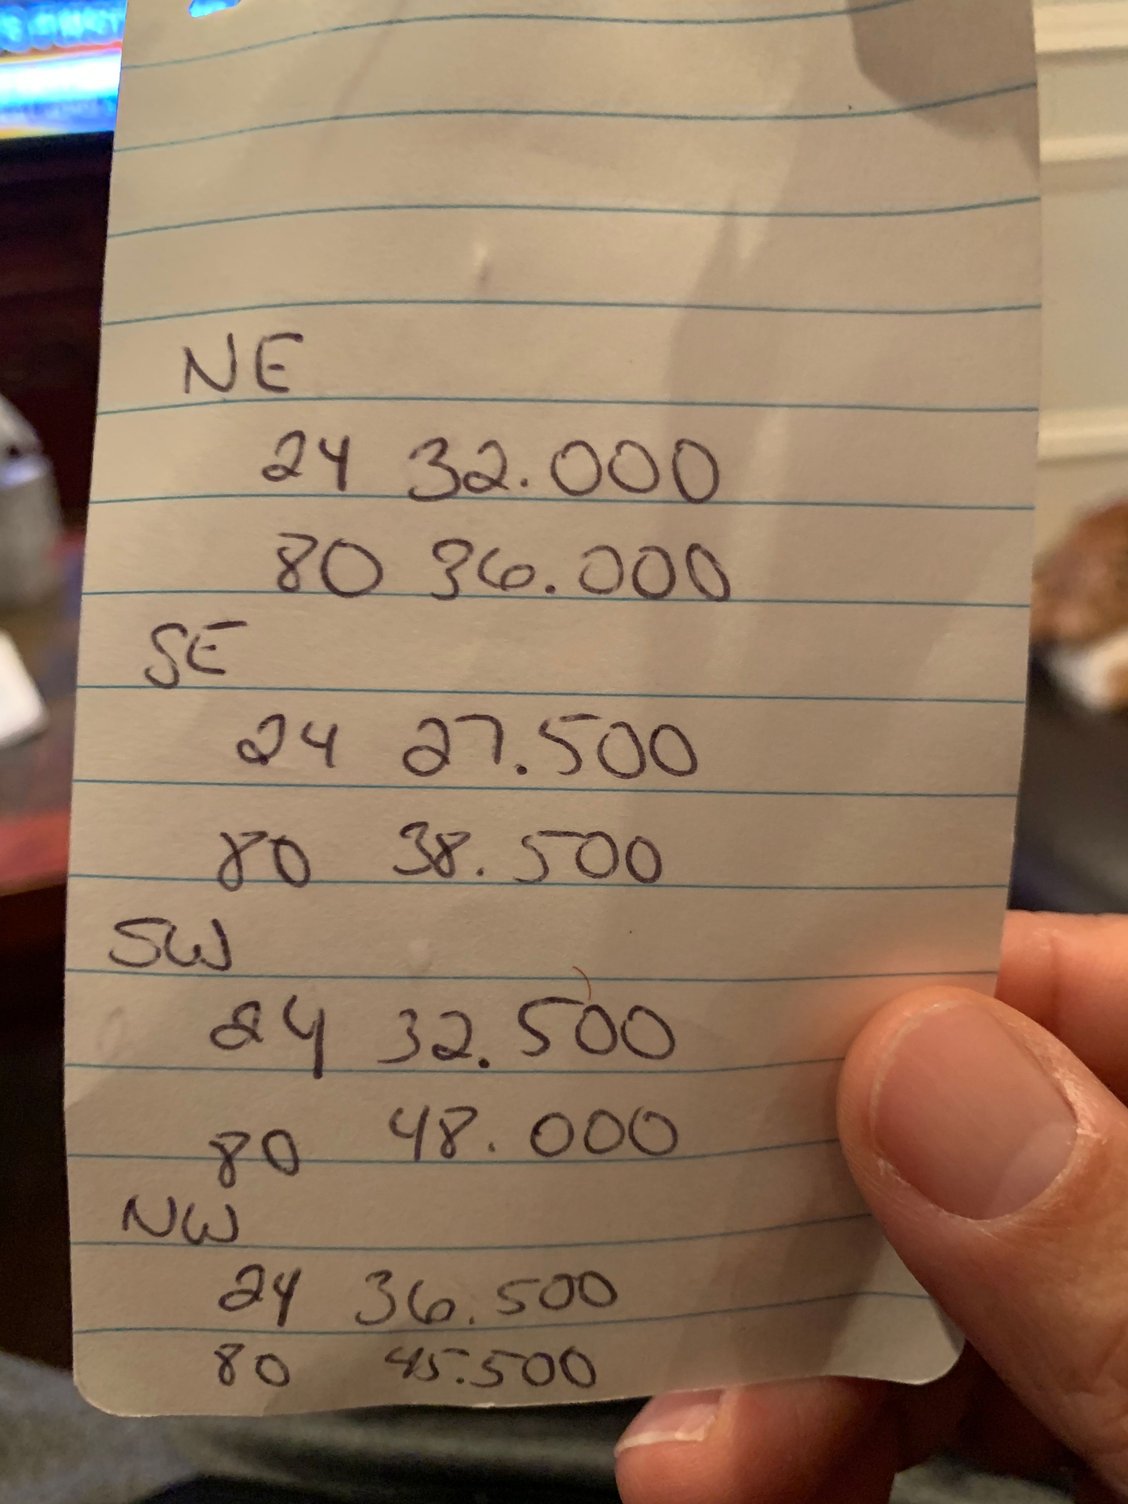 NE
24 32.000
80 36.000
SE
24 27.500
80 38.500
SW
24 32.500
80 48.000
NW
24 36.500
80 45.500